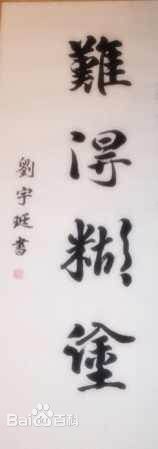 難得糊塗
劉宇珽書
Bai百科